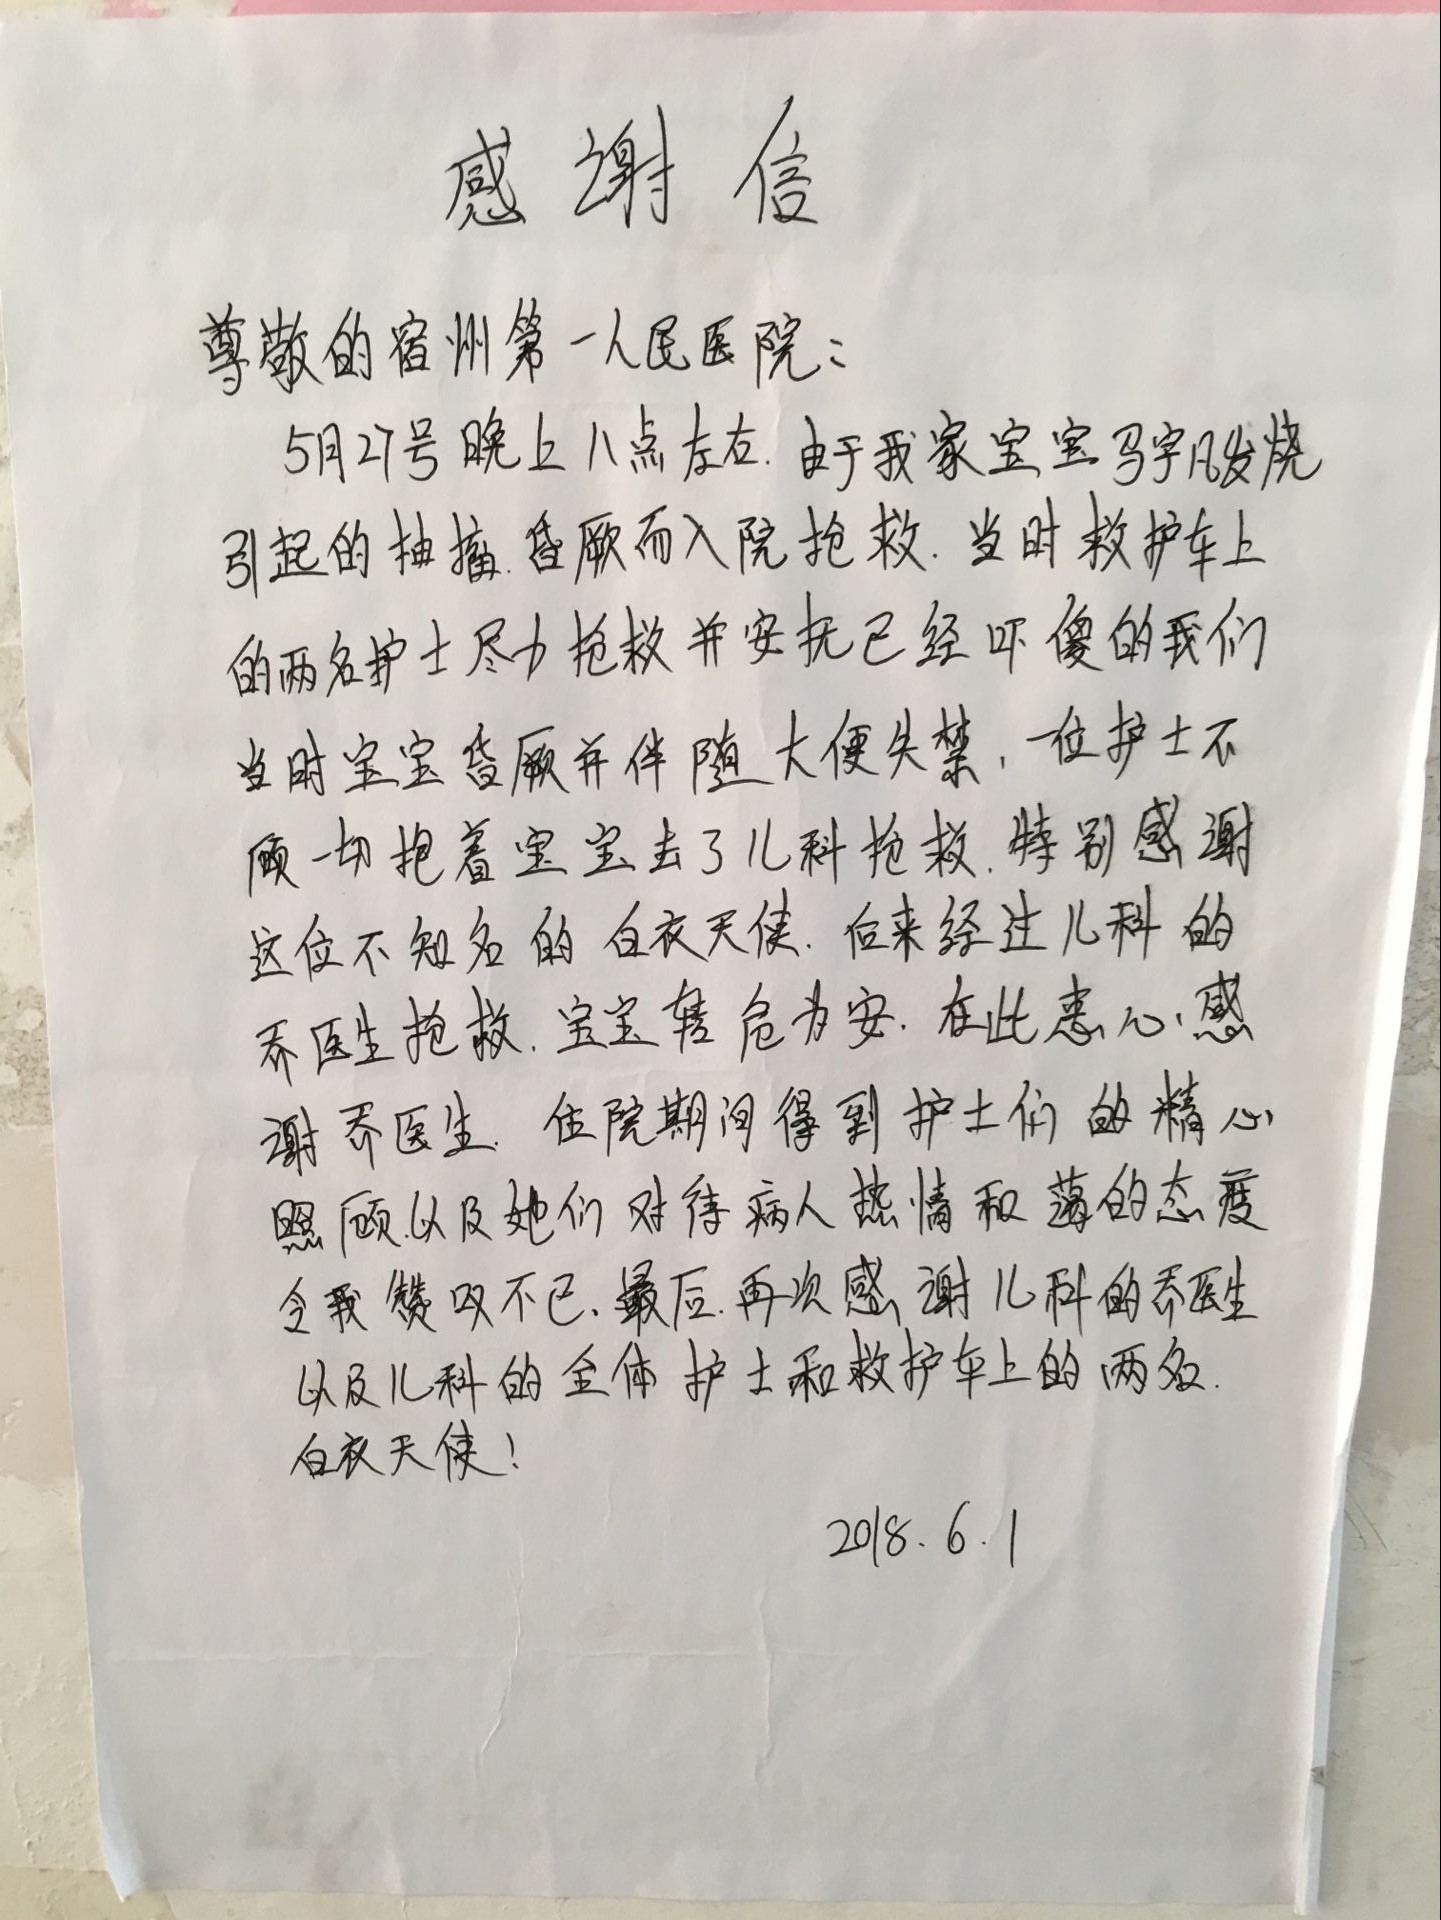 感谢信
尊敬的宿州第一人民医院：
5月27号晚上八点左右.由于我家宝宝马宇凡发烧
引起的抽搐.昏厥而入院抢救.当时救护车上
的两名护士尽力抢救并安抚已经吓傻的我们
当时宝宝昏厥并伴随大便失禁,一位护士不
顾一切抱着宝宝去了儿科抢救.特别感谢
这位不知名的白衣天使.后来经过儿科的
乔医生抢救.宝宝转危为安.在此衷心感
谢乔医生.住院期间得到护士们的精心
照顾.以及她们对待病人热情和蔼的态度
令我赞叹不已、最后.再次感谢儿科的乔医生
以及儿科的全体护士和救护车上的两名.
白衣天使!
2018.6.1